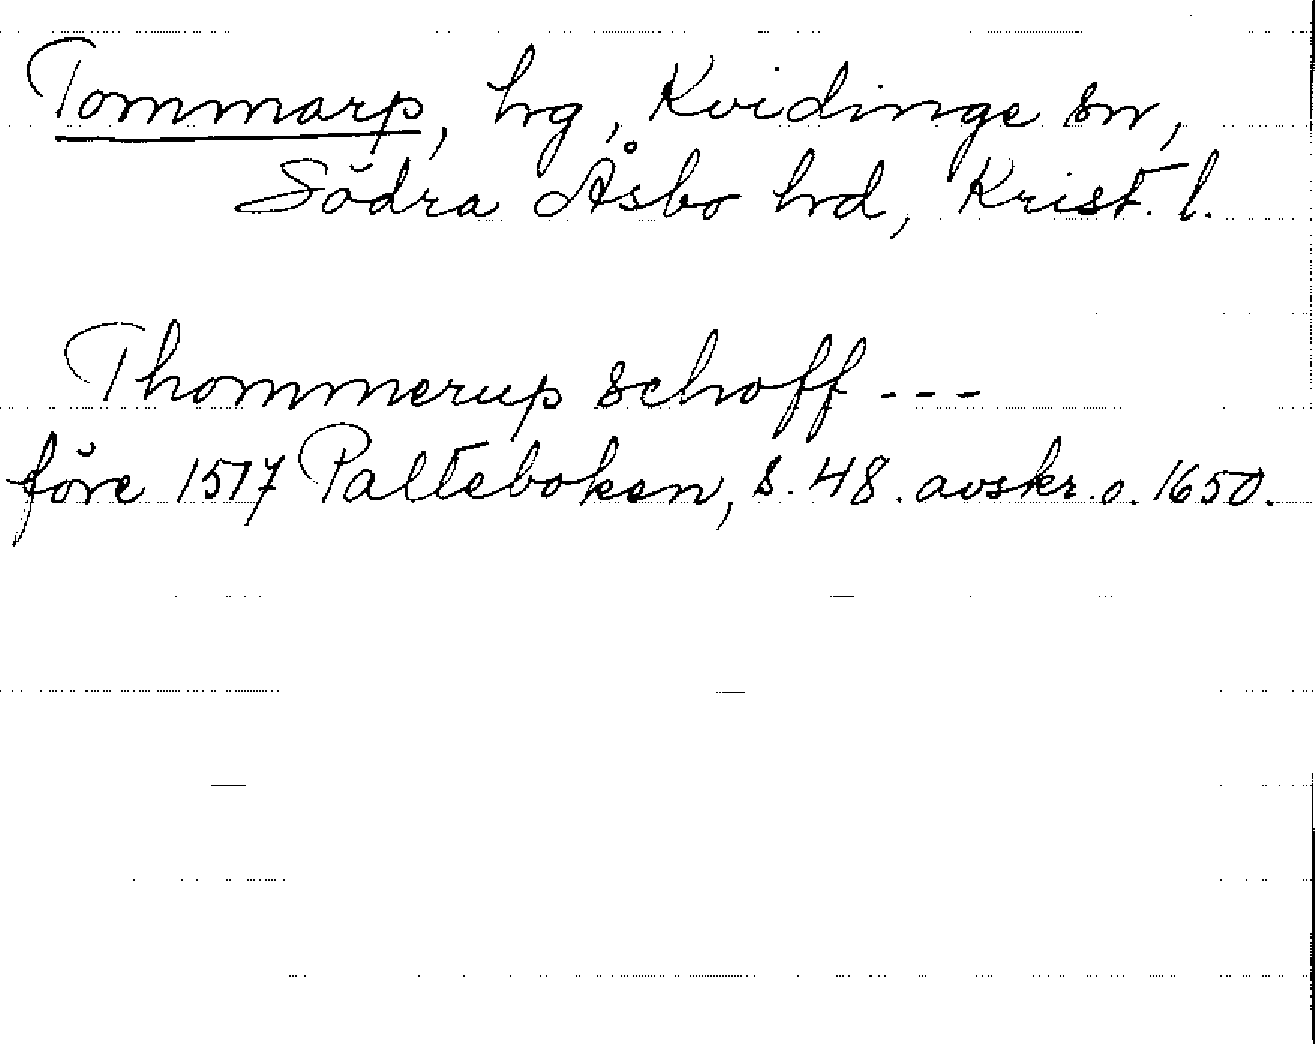 Tommarp, hg, Kvidinge sn,
Södra Åsbo hd, Krist. l.
Thommerup schoff ---
före 1517 Palteboken, s. 48. avskr. o. 1650.